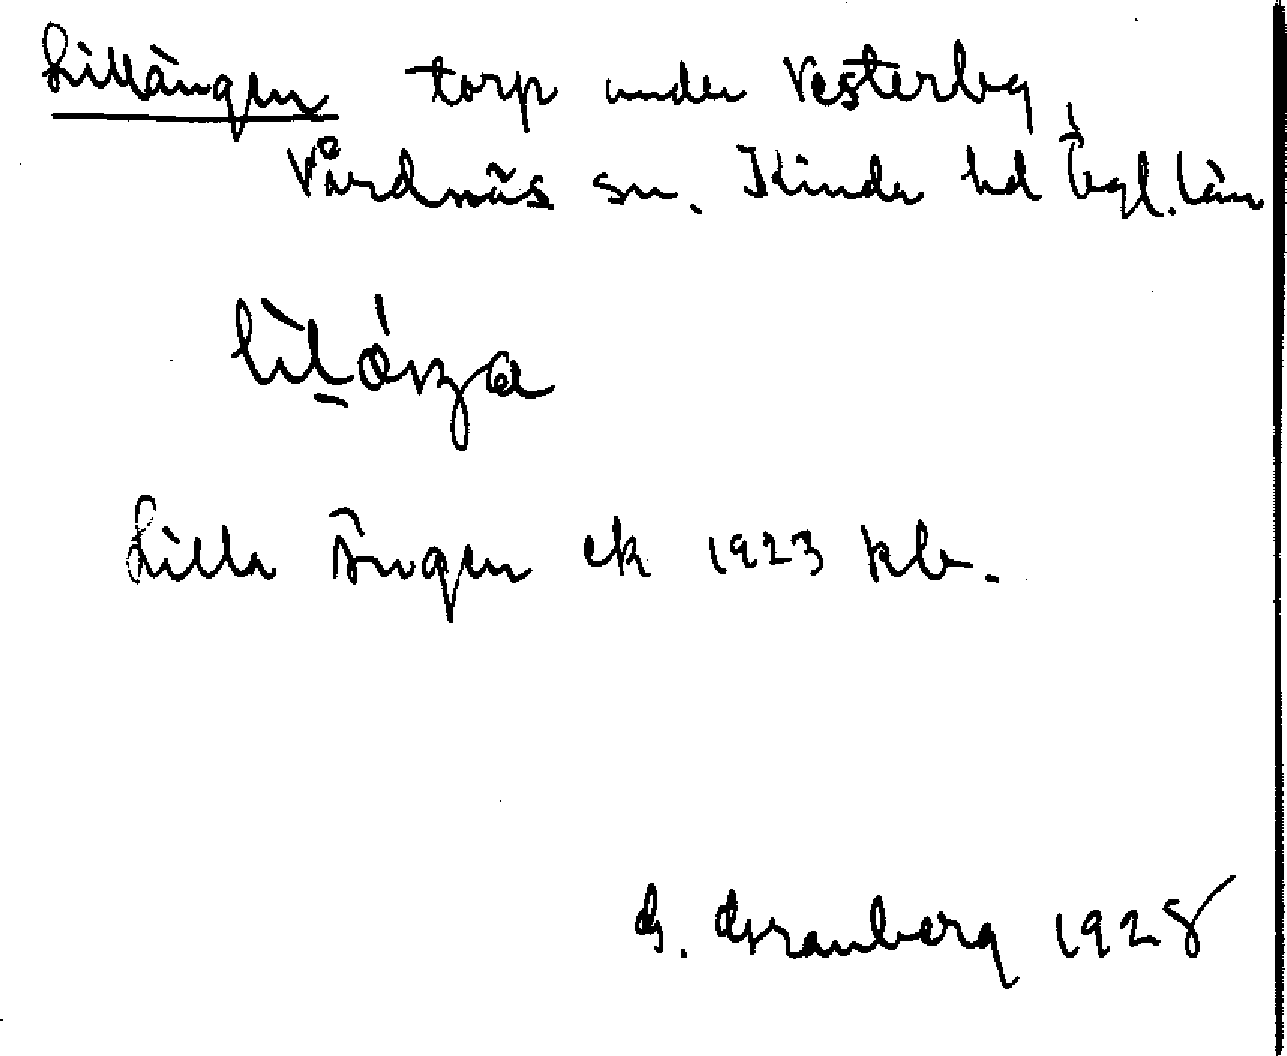 Lillängen torp under Vesterby
Vårdnäs sn. Kinda hd Ögl. län
Lilla Ängen ek 1923 kb.
G. Granberg 1928